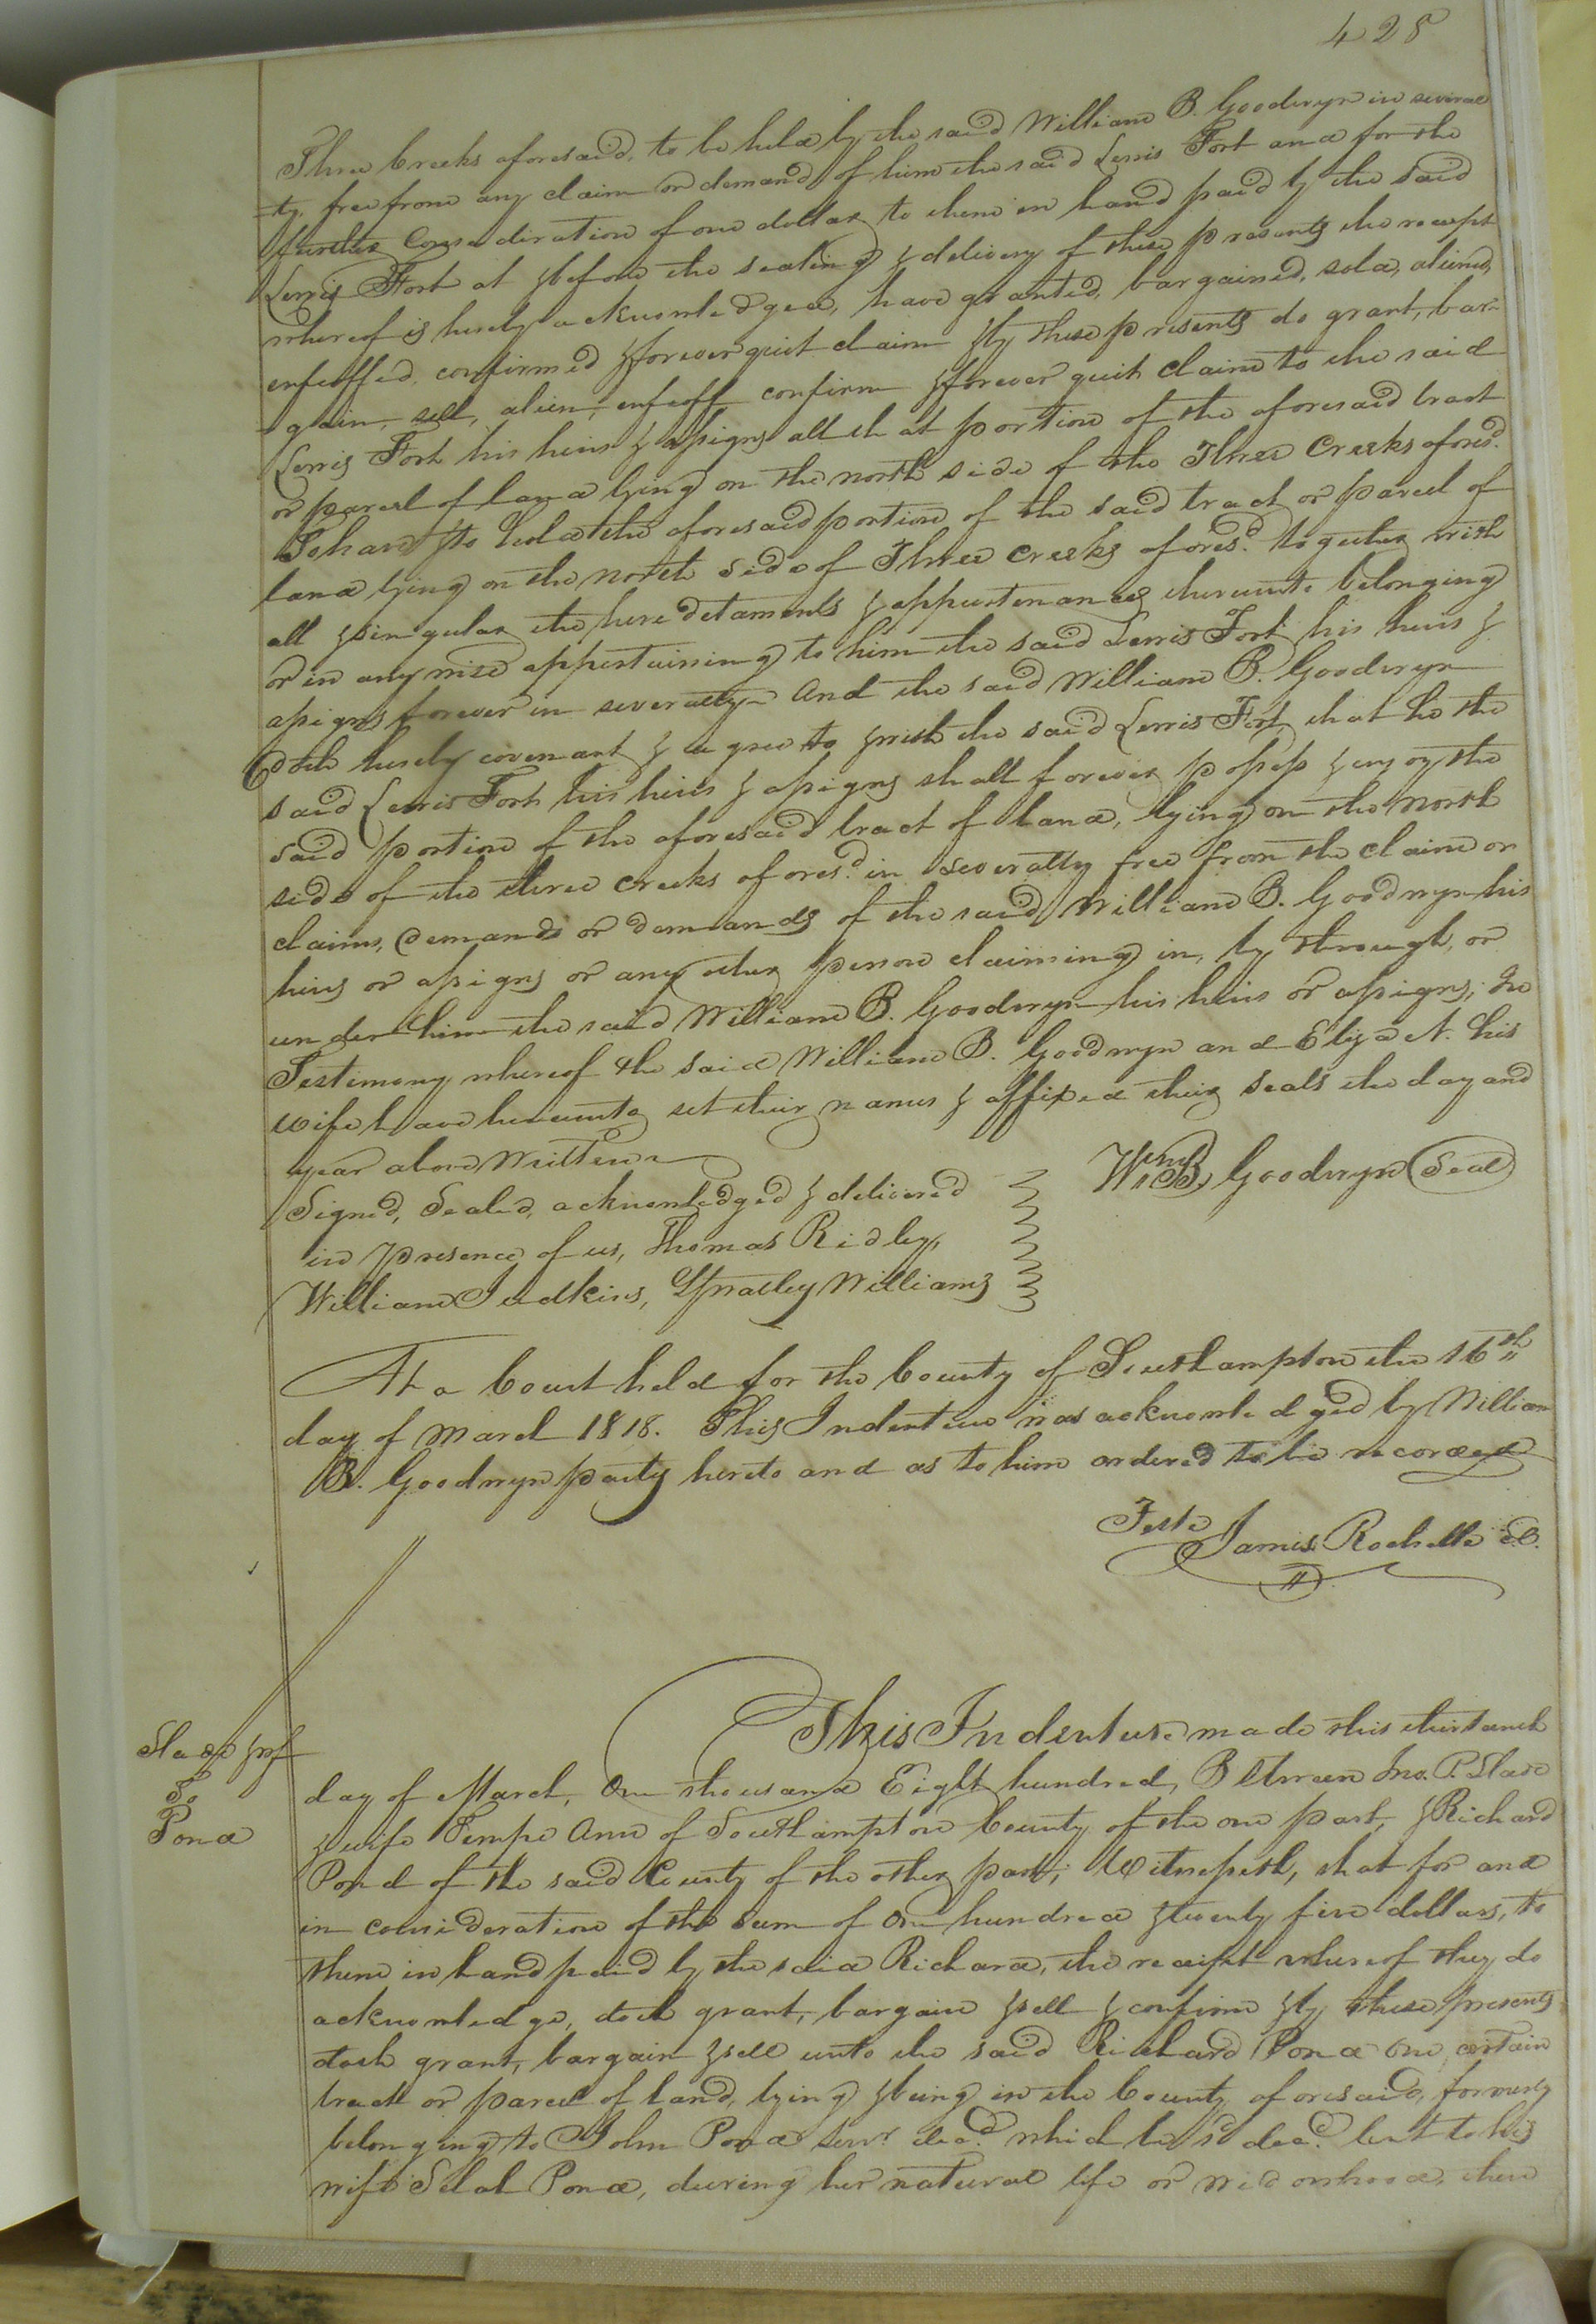 428
Three Creeks aforesaid, to be held by the said William B. Goodwyn in several
-ty, free from any claim or demand of him the said Lewis Fort and for the
further Consideration of one dollar to them in hand paid by the said
Lewis Fort at & before the sealing & delivery of these presents the receipt
whereof is hereby acknowledged, have granted, bargained, sold, aliened,
enfeoffed, confirmed & forever quit claim & by these presents do grant, bar-
-gain, sell, alien, enfeoff confirm & forever quit claim to the said
Lewis Fort his heirs & assigns all that portion of the aforesaid tract
or parcel of land lying on the north side of the Three Creeks afores.d
To have & to hold the aforesaid portion of the said tract or parcel of
land lying on the north side of Three Creeks afores.d together with
all & singular the heredetaments & appurtenances thereunto belonging
or in any wise appertaining to him the said Lewis Fort his heirs &
assigns forever in severalty And the said William B. Goodwyn
doth hereby covenant & agree to & with the said Lewis Fort, that he the
said Lewis Fort his heirs & assigns shall forever possess & enjoy the
said portion of the aforesaid tract of land, lying on the north
side of the three creeks afores.d in severalty free from the claim or
claims, demand or demands of the said William B. Goodwyn his
heirs or assigns or any other person claiming in, by through, or
under him the said William B. Goodwyn his heirs or assigns; In
Testimony whereof the said William B. Goodwyn and Eliza N. his
wife have hereunto set their names & affixed their seals the day and
year above Written
Wm B. Goodwyn Seal
Signed, Sealed, acknowledged & delivered
in presence of us, Thomas Ridley,
William Judkins, Spratley Williams
At a Court held for the County of Southampton the 16th
day of March 1818. This Indenture was acknowledged by William
B. Goodwyn party hereto and as to him ordered to be recorded
Teste
James Rochelle C.C.
Slade & wf
To
Pond
This Indenture made this thirteenth
day of March, One thousand Eight hundred, Between Jno. P. Slade
& wife Tempe Ann of Southampton County of the one part, & Richard
Pond of the said County of the other part; Witnesseth, that for and
in consideration of the sum of One hundred & twenty five dollars, to
them in hand paid by the said Richard, the receipt whereof they do
acknowledge, doth grant, bargain & sell & confirm & by these presents
doth grant, bargain & sell unto the said Richard Pond One certain
tract or parcel of land, lying & being in the County aforesaid, formerly
belonging to John Pond senr. decd. which he sd decd. lent to his
wife Selah Pond, during her natural life or widowhood, then